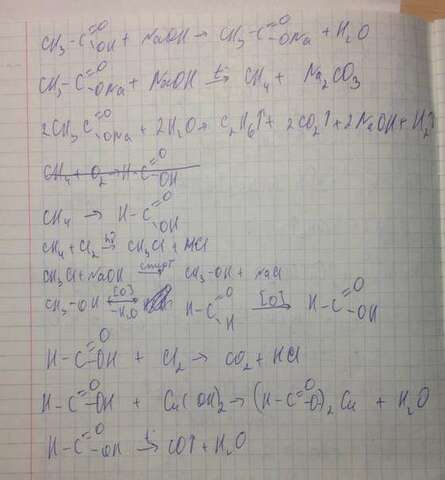 CH₃-C(=O)OH + NaOH → CH₃-C(=O)ONa + H₂O
CH₃-C(=O)ONa + NaOH →t CH₄ + Na₂CO₃
2CH₃C(=O)ONa + 2H₂O → C₂H₆↑ + 2CO₂↑ + 2NaOH + H₂↑
CH₄ + O₂ → H-C(=O)OH
CH₄ → H-C(=O)OH
CH₄ + Cl₂ →hν CH₃Cl + HCl
CH₃Cl + NaOH →спирт CH₃-OH + NaCl
CH₃-OH →[O] -H₂O H-C(=O)H →[O] H-C(=O)OH
H-C(=O)OH + Cl₂ → CO₂ + HCl
H-C(=O)OH + Cu(OH)₂ → (H-C(=O)O)₂Cu + H₂O
H-C(=O)-OH →t CO↑ + H₂O